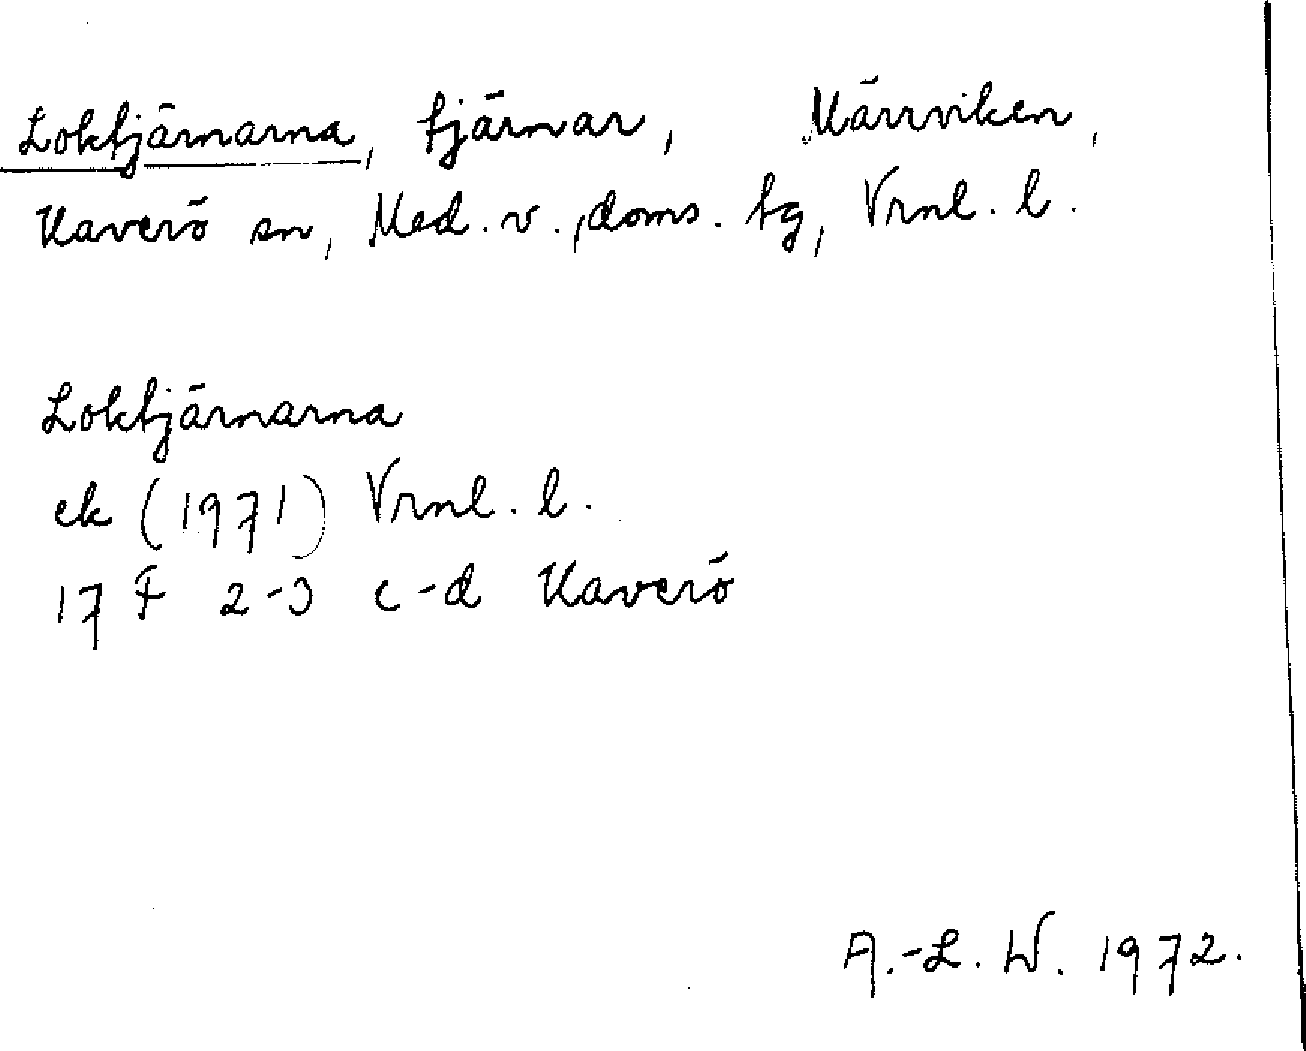 Loktjärnarna, tjärnar, Märrviken,
Haverö sn, Med. v., doms. tg, Vrnl. l.
Loktjärnarna
ek (1971) Vrnl. l.
17 F 2-3 c-d Haverö
A.-L. W. 1972.